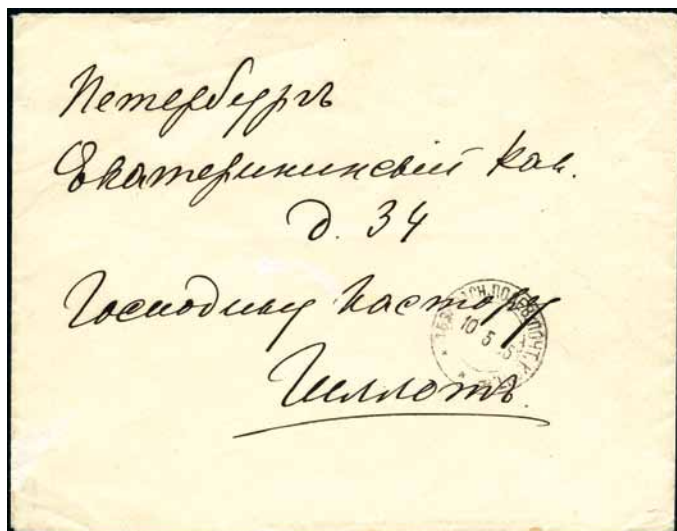 Петербургъ
Екатерининскій кан.
д. 34
Господину Пастору
Гиллотъ.
10 5